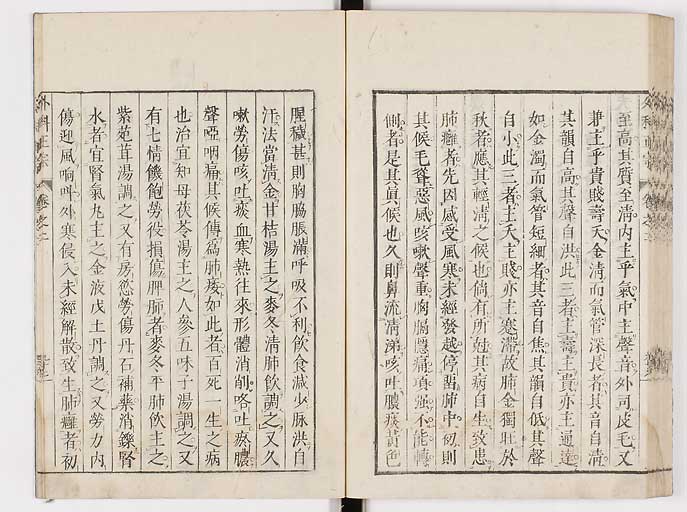 至高其質至清内主乎氣中主聲音外司皮毛又
兼主乎貴賤壽夭金清而氣管深長者其音自清
其韻自高其聲自洪此三者主壽主貴亦主通達
如金濁而氣管短細者其音自焦其韻自低其聲
自小此三者主夭主賤亦主蹇滯故肺金獨旺於
秋者應其輕清之候也倘有所尅其病自生致患
肺癰者先因感受風寒未經發越停留肺中初則
其候毛聳惡風咳嗽聲重胸膈隱痛項強不能轉
側者是其真候也久則鼻流清涕咳吐膿痰黄色
腥穢甚則胸脇脹滿呼吸不利飲食減少脉洪自
汗法當清金甘桔湯主之麥冬清肺飲調之又久
嗽勞傷咳吐痰血寒熱往來形體消削咯吐瘀膿
聲啞咽痛其候傳爲肺痿如此者百死一生之病
也治宜知母茯苓湯主之人參五味子湯調之又
有七情饑飽勞役損傷脾肺者麥冬平肺飲主之
紫菀茸湯調之又有房慾勞傷丹石補藥消鑠腎
水者宜腎氣丸主之金液戊土丹調之又勞力内
傷迎風响叫外寒侵入未經解散致生肺癰者初
外科正宗
卷之二